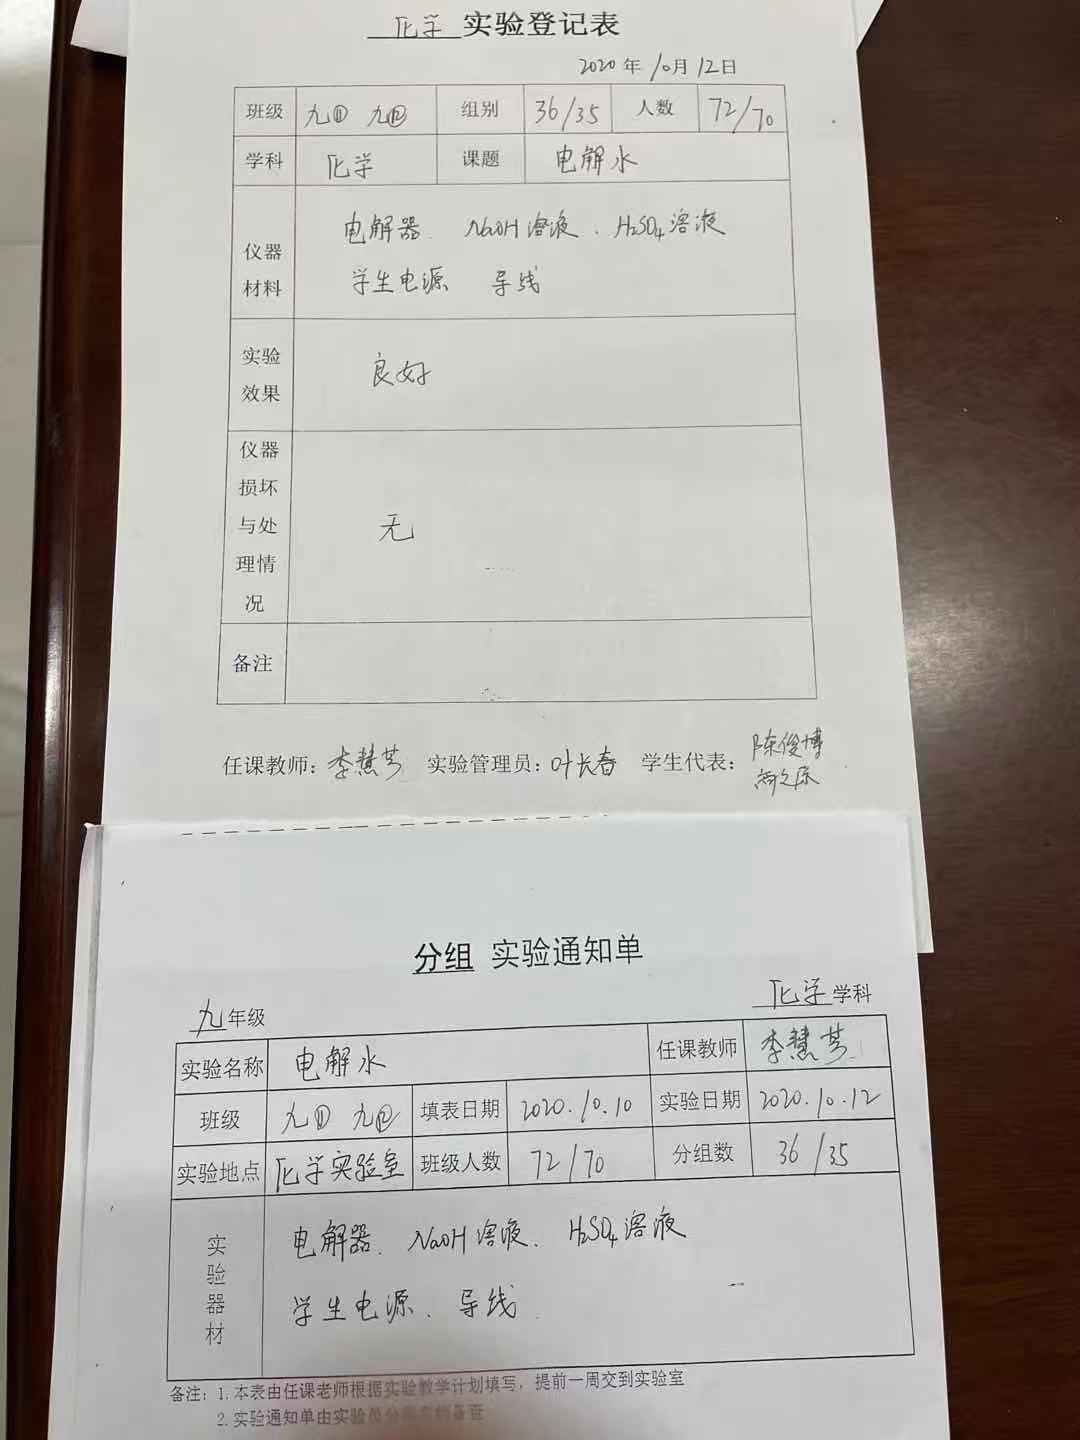 化学 实验登记表
2020年10月12日
班级 九⑪ 九⑫ 组别 36/35 人数 72/70
学科 化学 课题 电解水
仪器材料 电解器、NaOH溶液、H₂SO₄溶液
学生电源 导线
实验效果 良好
仪器损坏与处理情况 无
备注
任课教师：李慧芳 实验管理员：叶长春 学生代表：陈俊博
分组 实验通知单
九年级 化学学科
实验名称 电解水 任课教师 李慧芳
班级 九⑪ 九⑫ 填表日期 2020.10.10 实验日期 2020.10.12
实验地点 化学实验室 班级人数 72/70 分组数 36/35
实验器材 电解器、NaOH溶液、H₂SO₄溶液
学生电源、导线
备注：1.本表由任课老师根据实验教学计划填写，提前一周交到实验室
2.实验通知单由实验员分